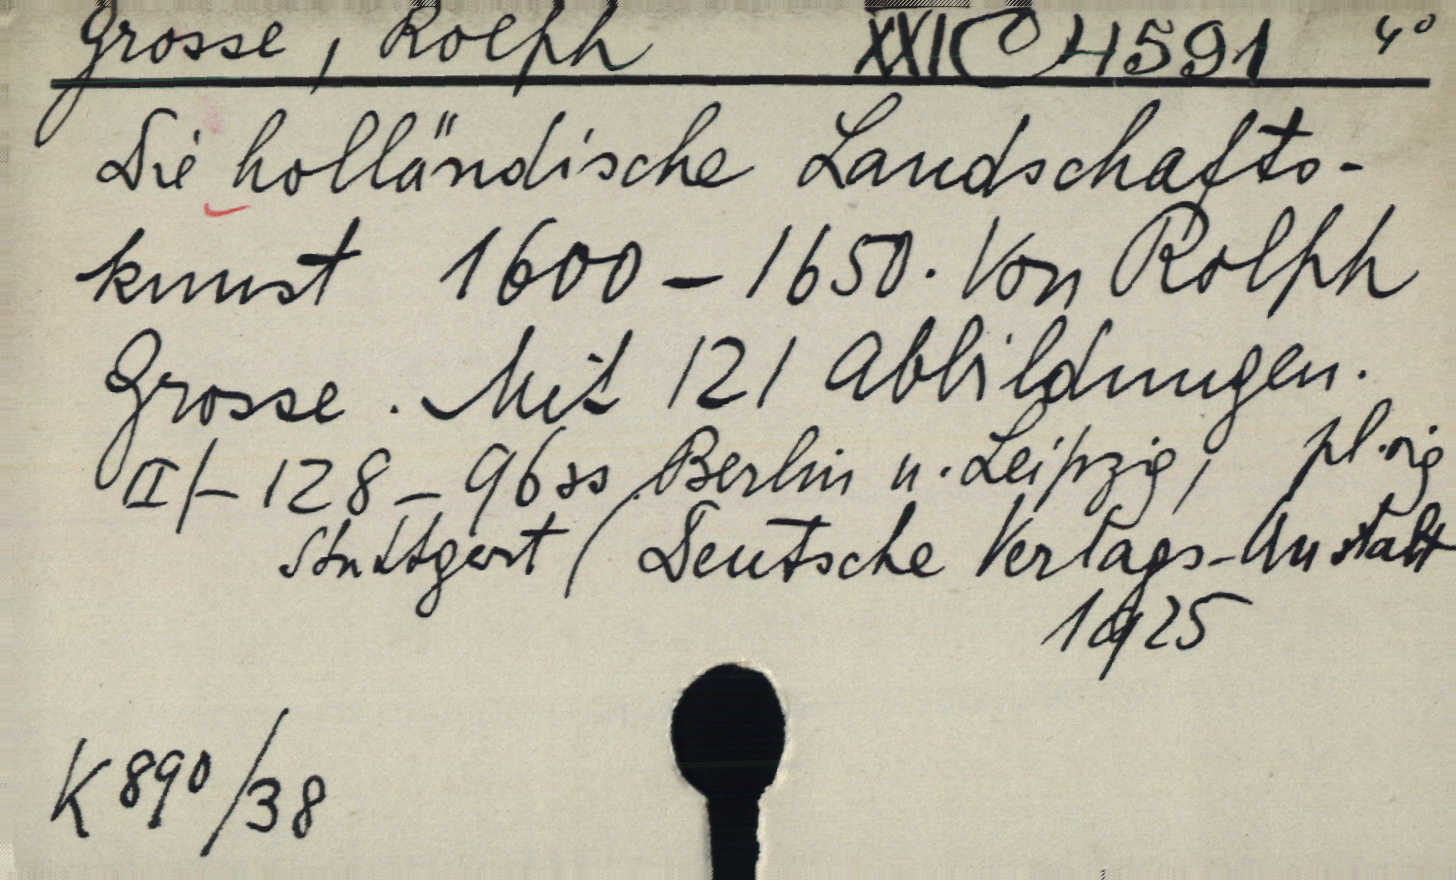 Grosse, Rolph XXI C 4591 4°
Die holländische Landschafts-
kunst 1600-1650. Von Rolph
Grosse. Mit 121 Abbildungen.
II/-128-96 ss. Berlin u. Leipzig, pl. rig
Stuttgart (Deutsche Verlags-Anstalt
1925
K 890/38